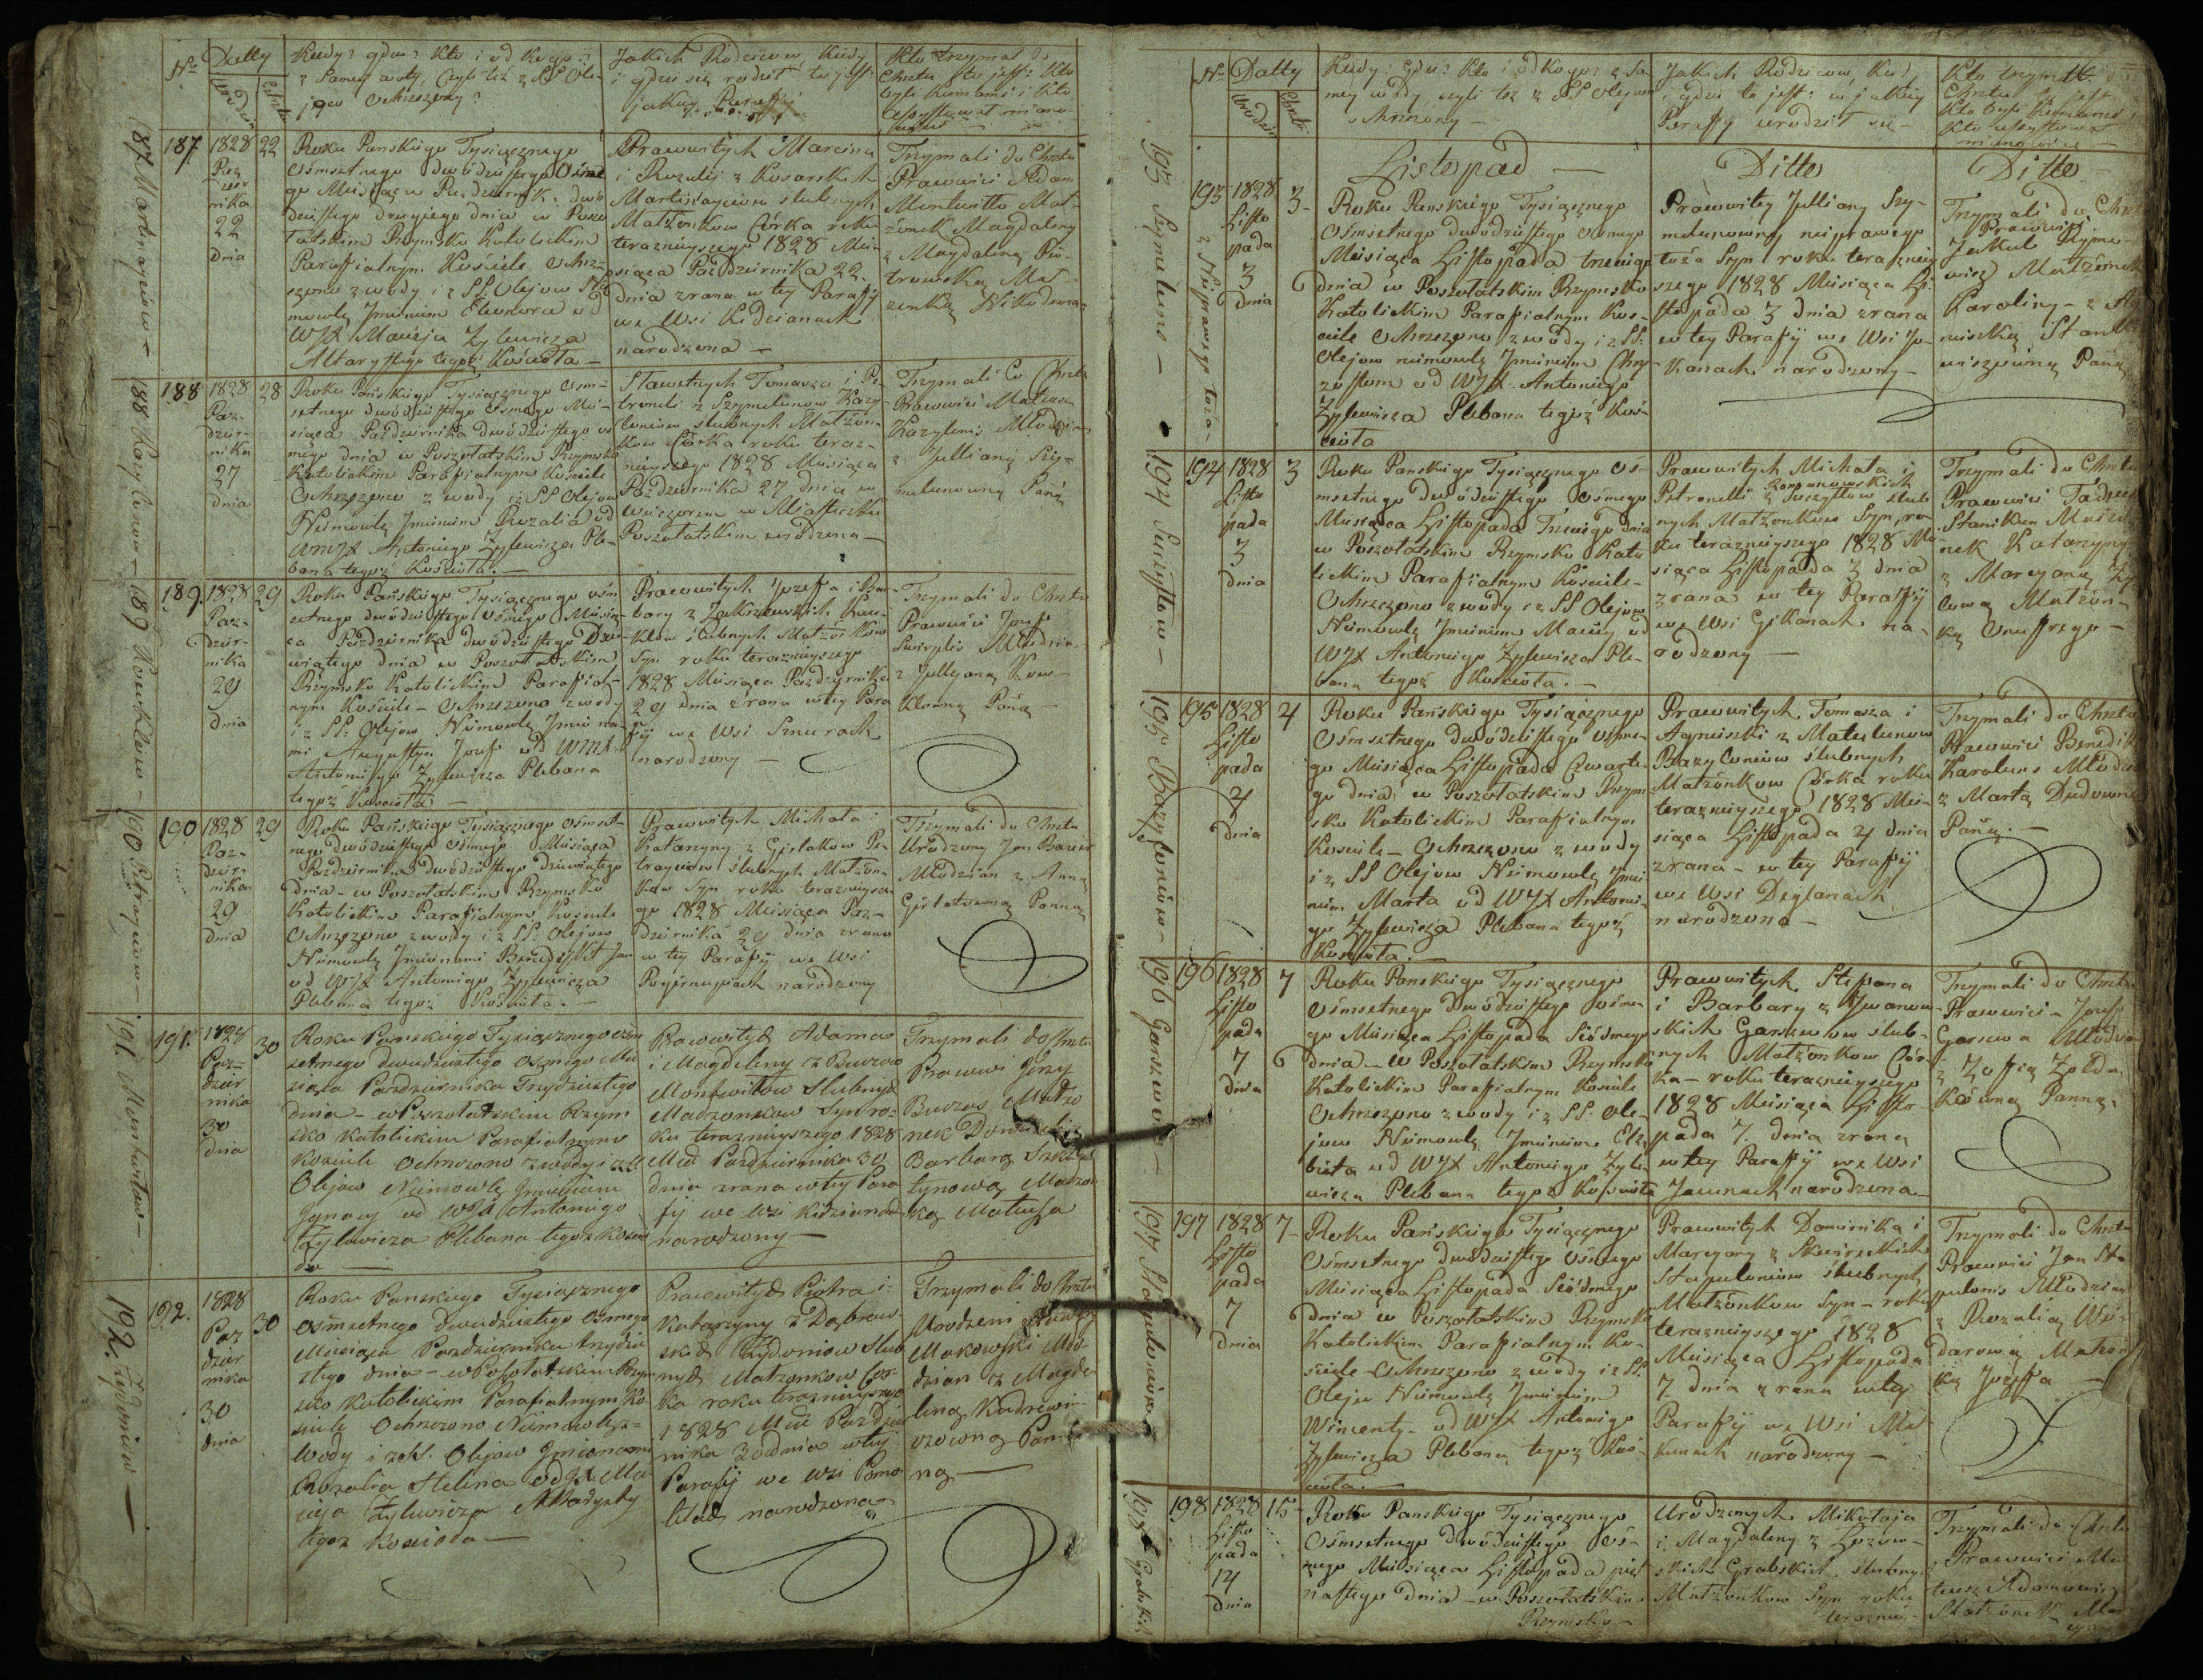 Nro
Datty
Urodzin
Chrztu
Kiedy? gdzie? kto i od kogo?
z samey wody, czyli też z SS Ole-
jow ochrzczony?
Jakich Rodzicow, kiedy
i gdzie się rodził to jest:
jakiey Parafij
Kto trzymał do
Chrztu to jest: Kto
byli Kumami i kto
assystował
187 Martinayciow —
187
1828
Paz
dzier
nika
22
dnia
22
Roku Panskiego Tysiącznego
Ośmsetnego dwódziestego Ósme
go Miesiąca Pazdziernik. dwó
dziestego drugiego dnia w Poszo
łatskim Rzymsko Katolickim
Parafialnym Kościele ochrz-
czono z wody i z SS. Olejow Nie
mowlę Jmieniem Eleonora od
WJX Macieja Zylewicza
Altarysty tegoż Kościoła —
Prawowitych Marcina
i Rozalij z Kosarskich
Martinayciow slubnych
Małżonkow Córka roku
terazniejszego 1828 Mie-
siąca Pazdziernika 22
dnia zrana w tey Parafij
we Wsi Kidzianach
narodzona —
Trzymali do Chrztu
Prawowici Adam
Montwiłło Mał-
żonek Magdaleny
z Magdaleną Pio-
trowską Mał-
żonką Nikodema
188 Bazylunow —
188
1828
Paz-
dzier-
nika
27
dnia
28
Roku Pańskiego Tysiącznego ośm-
setnego dwódziestego Ósmego Mie-
siąca Pazdziernika dwódziestego ós
mego dnia w Poszołatskim Rzymsko
Katolickim Parafialnym Kościele
Ochrzczono z wody i z SS Olejow
Niemowlę Jmieniem Rozalia od
WMJX Antoniego Zylewicza Ple-
bana tegoż Kościoła. —
Sławetnych Tomasza i Pe-
troneli z Szymelunow Bazy-
lunow slubnych Małżon-
kow Córka roku teraz-
nieyszego 1828 Miesiąca
Pazdziernika 27 dnia w
wieczorem w Miasteczku
Poszołatskim urodzona —
Trzymali do Chrztu
Prawowici Mateusz
Bazylunis Młodzian
z Julianą Szy-
melunowną Panną
189 Kowklow —
189.
1828
Paz-
dzier-
nika
29
dnia
29
Roku Pańskiego Tysiącznego ośm
setnego dwódziestego Ósmego Miesią-
ca Pazdziernika dwódziestego Dzie-
wiątego dnia w Poszołatskim
Rzymsko Katolickim Parafial-
nym Kościele — Ochrzczono z wody
i z SS. Olejow Niemowlę Jmiona-
mi Augustyn Jozef od WMJX
Antoniego Zylewicza Plebana
tegoż Kościoła —
Prawowitych Jozefa i Bar-
bary z Zakrzewskich Kow-
klow slubnych Małżonkow
Syn roku terazniejszego
1828 Miesiąca Pazdziernika
29 dnia zrana w tey Para
fij we Wsi Sznurach
narodzony —
Trzymali do Chrztu
Prawowici Jozef
Młodzian
z Julijaną Kow-
klowną Panną —
190 Petrayciow —
190
1828
Paz-
dzier-
nika
29
dnia
29
Roku Pańskiego Tysiącznego ośmset-
nego dwódziestego Ósmego Miesiąca
Pazdziernika dwódziestego dziewiątego
dnia — w Poszołatskim Rzymsko
Katolickim Parafialnym Kościele
Ochrzczono z wody i z SS. Olejow
Niemowlę Jmionami Benedykt Jan
od WJX Antoniego Zylewicza
Plebana tegoż Kościoła. —
Prawowitych Michała i
Katarzyny z Giełatow Pe-
trayciow slubnych Małżon-
kow Syn roku terazniejsze-
go 1828 Miesiąca Paz-
dziernika 29 dnia zrana
w tey Parafij we Wsi
narodzony
Trzymali do Chrztu
Urodzony Jan
Młodzian z Anną
Giełatowną Panną
191. Montwiłow —
191.
1828
Paz-
dzier
nika
30
dnia
30
Roku Panskiego Tysiącznego ośm
setnego dwudziestego Osmego Mie
siąca Pazdziernika Trzydziestego
dnia — w Poszołatskim Rzym
sko Katolickim Parafialnym
Kosciele Ochrzczono z wody i z SS
Olejow Niemowlę Jmieniem
Jgnacy od WJX Antoniego
Zylewicza Plebana tegoz Kościo
ła —
Prawowitych Adama
i Magdeleny z Buczow
Montwiłow Slubnych
Małzonkow Syn ro-
ku terazniejszego 1828
Mca Pazdziernika 30
dnia zrana w tey Para
fij we Wsi Kidzianach
narodzony —
Trzymali do Chrztu
Prawowici Jerzy
Małzo
nek
Barbarą
tynową Małzon
ką Mateusza
192. Zydoniow —
192.
1828
Paz
dzier
nika
30
dnia
30
Roku Panskiego Tysiącznego
ośmsetnego dwudziestego Osmego
Miesiąca Pazdziernika trzydzie
stego dnia — w Poszołatskim Rzym
sko Katolickim Parafialnym Ko
sciele Ochrzczono Niemowlę z
Wody i z SS. Olejow Jmionami
Rozalia Helina od JX Ma
cieja Zylewicza Altarysty
tegoz Kosciola —
Prawowitych Piotra i
Katarzyny z Dąbrow-
skich Zydoniow Slub
nych Małzonkow Cor-
ka roku terazniejszego
1828 Mca Pazdzier
nika 30 dnia w tey
Parafij we Wsi
narodzona
Trzymali do Chrztu
Urodzeni
Makowski Mło-
dzian z Magda
leną
Pan-
ną —
Nro
Datty
Urodzin
Chrztu
Kiedy? gdzie? Kto i od kogo? z Sa-
mey wody, czyli też z SS Olejow
ochrzczony —
Jakich Rodzicow, kiedy
i gdzie to jest: w jakiey
Parafij urodził się —
Kto trzymał do
Chrztu to jest
Kto byli Kumami
Kto assystował
mianowicie —
Listopad —
Ditto
Ditto —
193 Szymelunc —
z Nieprawego Łoża —
193
1828
Listo
pada
3
dnia
3 —
Roku Panskiego Tysiącznego
Ośmsetnego dwódziestego Osmego
Miesiąca Listopada trzeciego
dnia w Poszołatskim Rzymsko
Katolickim Parafialnym Koś-
ciele Ochrzczono z wody i z SS.
Olejow niemowlę Jmieniem Chry-
zostom od WJX Antoniego
Zylewicza Plebana tegoż Koś-
cioła
Prawowitey Julliany Szy-
melunowny nieprawego
łoża Syn roku terazniey
szego 1828 Miesiąca Li-
stopada 3 dnia zrana
w tey Parafij we Wsi Jo-
kanach narodzony —
Trzymali do Chrztu
Prawowici
Jakub
Małżonek
Karoliny — z Ag
nieszką
Panną
194 Suczyłow —
194
1828
Listo
pada
3
dnia
3
Roku Panskiego Tysiącznego Oś-
msetnego dwódziestego Ósmego
Miesiąca Listopada Trzeciego dnia
w Poszołatskim Rzymsko Kato
lickim Parafialnym Kościele —
Ochrzczono z wody i z SS Olejow
Niemowlę Jmieniem Maciey od
WJX Antoniego Zylewicza Ple-
bana tegoż Kościoła. —
Prawowitych Michała i
Petronelli z Romanowskich
Suczyłow slub
nych Małżonkow Syn, ro-
ku terazniejszego 1828 Mie
siąca Listopada 3 dnia
zrana w tey Parafij
we Wsi Gikanach na-
rodzony —
Trzymali do Chrztu
Prawowici Tadeusz
Małżo
nek Katarzyny
z Marcyanną
Małżon-
ką Onufrego —
195 Bazyloniow —
195
1828
Listo
pada
4
dnia
4
Roku Pańskiego Tysiącznego
Ośmsetnego dwódziestego ósme-
go Miesiąca Listopada Czwarte-
go dnia w Poszołatskim Rzym
sko Katolickim Parafialnym
Kosciele — Ochrzczono z wody
i z SS Olejow Niemowlę Jmie
niem Marta od WJX Antonie-
go Zylewicza Plebana tegoż
Kościoła. —
Prawowitych Tomasza i
Agnieszki z Matulunow
Bazyloniow slubnych
Małżonkow Córka roku
terazniejszego 1828 Mie-
siąca Listopada 4 dnia
zrana — w tey Parafij
we Wsi Deglanach
narodzona —
Trzymali do Chrztu
Prawowici Benedikt
Karoluns Młodzian
z Martą Dudowną
Panną. —
196 Ganzewow —
196
1828
Listo
pada
7
dnia
7
Roku Panskiego Tysiącznego
Ośmsetnego dwódziestego ósme-
go Miesiąca Listopada Siódmego
dnia — w Poszołatskim Rzymsko
Katolickim Parafialnym Kościele
Ochrzczono z wody i z SS. Ole-
jow Niemowlę Jmieniem Elż-
bieta od WJX Antoniego Zyle-
wicza Plebana tegoż Kościoła
Prawowitych Stefana
i Barbary z Jwanow-
skich Ganzewow slub-
nych Małżonkow Cór-
ka — roku terazniejszego
1828 Miesiąca Listo-
pada 7. dnia zrana
w tey Parafij we Wsi
Jacunach narodzona —
Trzymali do Chrztu
Prawowici — Jozef
Młodzian
z Zofią Zołdo
kówną Panną.
197 Stapuloniow —
197
1828
Listo
pada
7
dnia
7 —
Roku Pańskiego Tysiącznego
Ośmsetnego dwódziestego Ósmego
Miesiąca Listopada Siódmego
dnia w Poszołatskim Rzymsko
Katolickim Parafialnym Ko-
sciele — Ochrzczono z wody i z SS.
Oleju Niemowlę Jmieniem
Wincenty — od WJX Antoniego
Zylewicza Plebana tegoż Koś-
cioła. —
Prawowitych Dominika i
Marcyany z Skwireckich
Stapuloniow slubnych
Małżonkow Syn — roku
terazniejszego 1828
Miesiąca Listopada
7 dnia zrana w tey
Parafij we Wsi Mi
kunach narodzony —
Trzymali do Chrztu
Prawowici Jan Sta
pulonis Młodzian
z Rozalią Woy-
darową Małżon
ką Jozefa —
198 Grabskich
198
1828
Listo
pada
14
dnia
15 —
Roku Panskiego Tysiącznego
Ośmsetnego dwódziestego Ós-
mego Miesiąca Listopada pięt
nastego dnia — w Poszołatskim
Rzymsko —
Urodzonych Mikołaja
i Magdaleny z Łozow-
skich Grabskich slubnych
Małżonkow Syn roku
terazniey-
Trzymali do Chrztu
Prawowici Ma
teusz Adamowicz
Małżonek